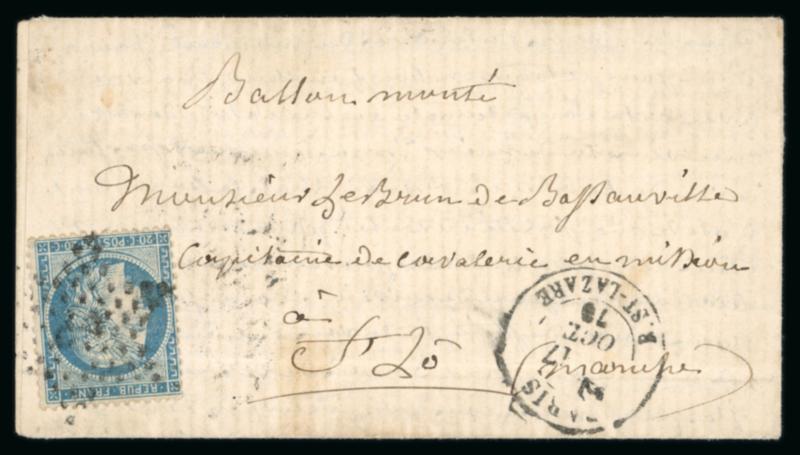 Ballon monté
Monsieur LeBrun de Bassauville
Capitaine de cavalerie en mission
à
St Lô (manche)
PARIS
R. ST-LAZARE
17
OCT.
70
20 C POSTES 20 C
REPUB FRANC